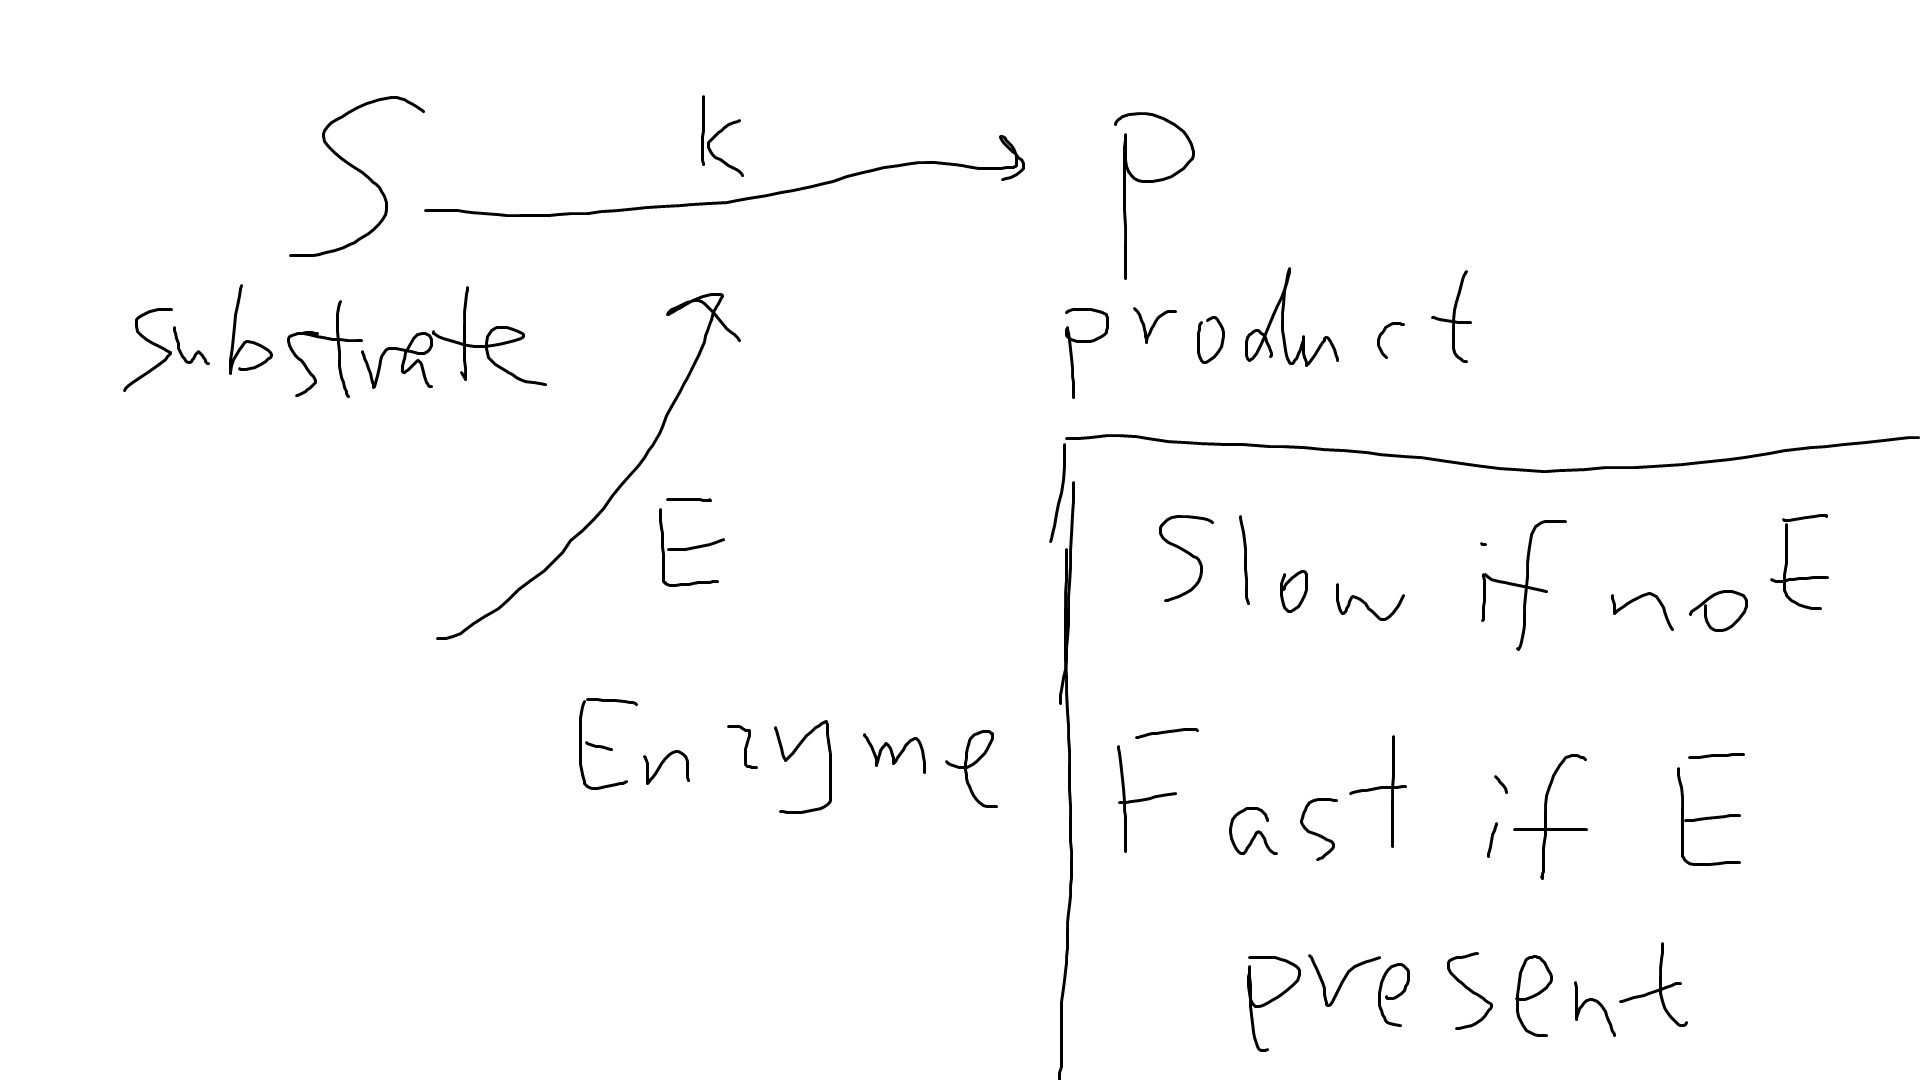 S k P
substrate
product
E
Enzyme
Slow if no E
Fast if E
present